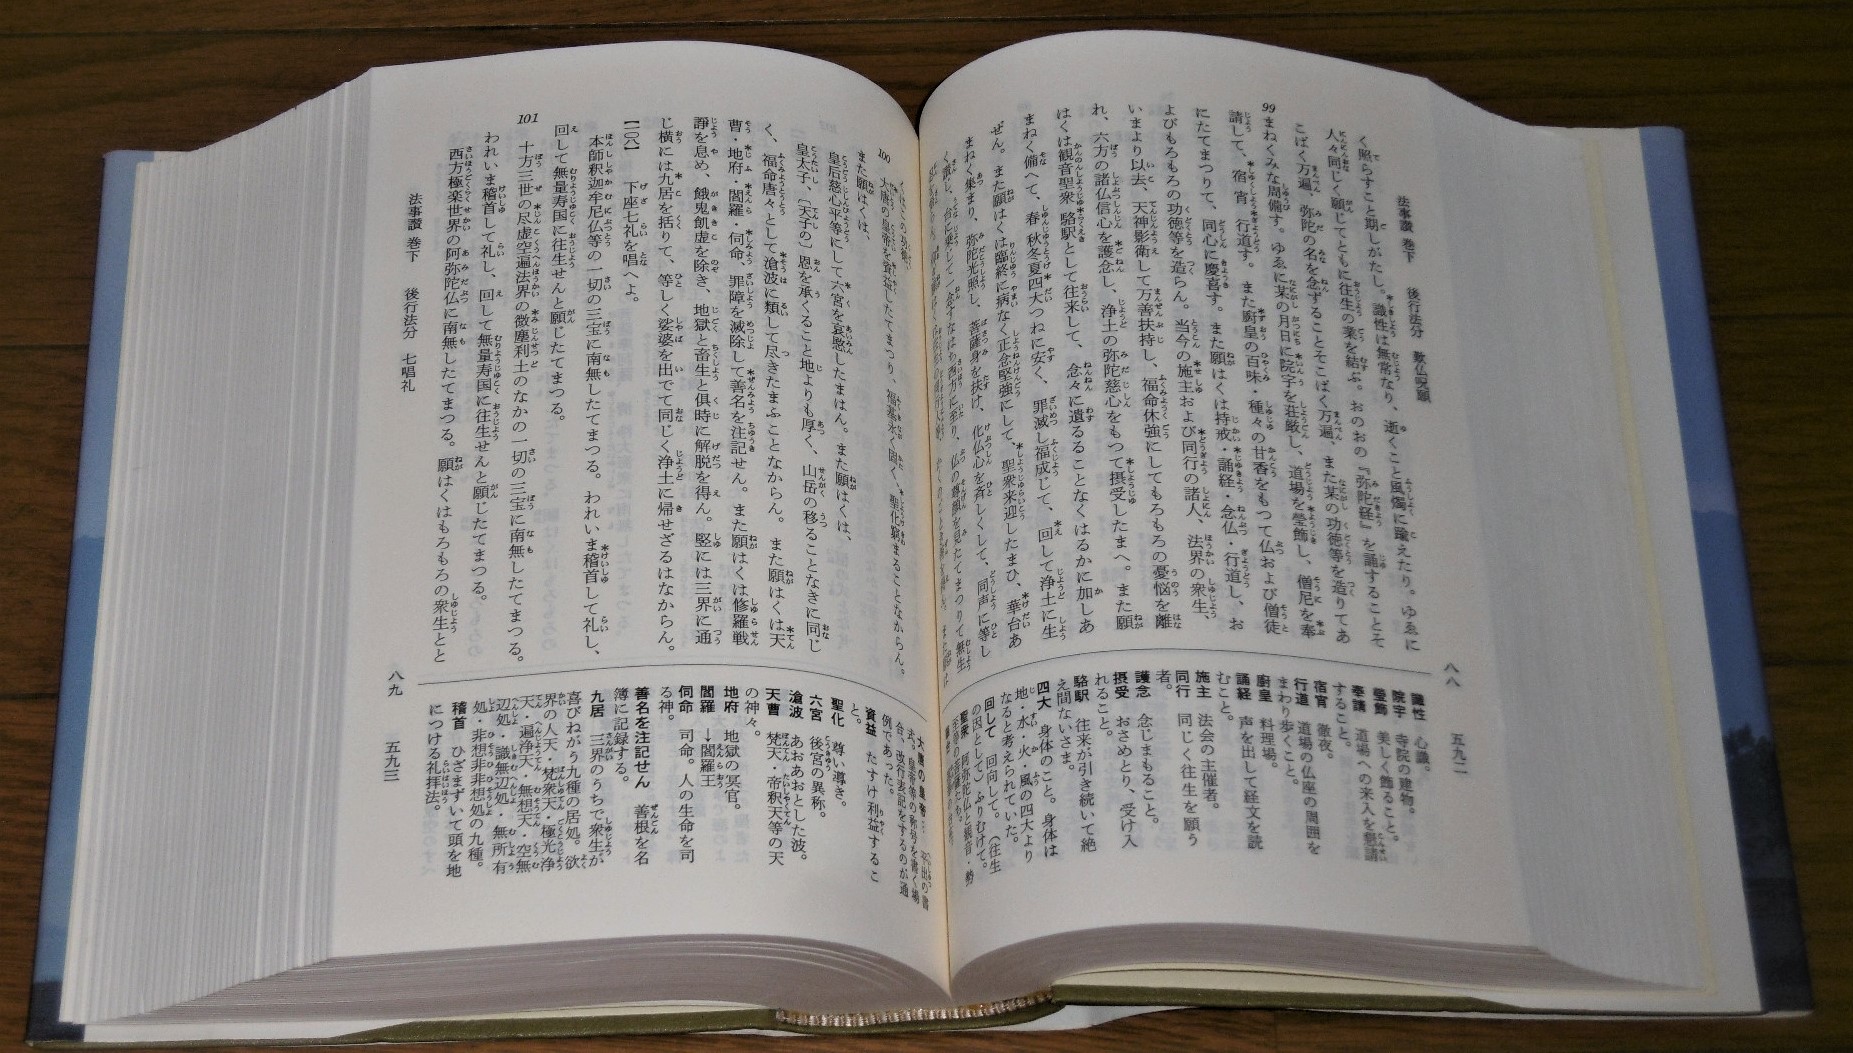 法事讃 巻下 後行法分 歎仏呪願
く照らすこと期しがたし。識性は無常なり、逝くこと風燭に踰えたり。ゆゑに
人々同じく願じてともに往生の業を結ぶ。おのおの『弥陀経』を誦することそ
こばく万遍、弥陀の名を念ずることそこばく万遍、また某の功徳等を造りてあ
99
まねくみな周備す。ゆゑに某の月日に院宇を荘厳し、道場を瑩飾し、僧尼を奉
請して、宿宵 行道す。また厨皇の百味・種々の甘香をもつて仏および僧徒
にたてまつりて、同心に慶喜す。また願はくは持戒・誦経・念仏・行道し、お
よびもろもろの功徳等を造らん。当今の施主および同行の諸人、法界の衆生、
いまより以去、天神影衛して万善扶持し、福命休強にしてもろもろの憂悩を離
れ、六方の諸仏信心を護念し、浄土の弥陀慈心をもつて摂受したまへ。また願
はくは観音聖衆 駱駅として往来して、念々に遺るることなくはるかに加しあ
まねく備へて、春 秋冬夏四大つねに安く、罪滅し福成じて、回して浄土に生
ぜん。また願はくは臨終に病なく正念堅強にして、聖衆来迎したまひ、華台あ
まねく集まり、弥陀光照し、菩薩身を扶け、化仏心を斉しくして、同声に等し
識性 心識。
院宇 寺院の建物。
瑩飾 美しく飾ること。
奉請 道場への来入を懇請
すること。
宿宵 徹夜。
行道 道場の仏座の周囲を
まわり歩くこと。
厨皇 料理場。
誦経 声を出して経文を読
むこと。
施主 法会の主催者。
同行 同じく往生を願う
者。
護念 念じまもること。
摂受 おさめとり、受け入
れること。
駱駅 往来が引き続いて絶
え間ないさま。
四大 身体のこと。身体は
地・水・火・風の四大より
なると考えられていた。
回して 回向して。（往生
の因として）ふりむけて。
八八 五九二
100
大唐の皇帝を資益したてまつり、福基永く固く、聖化窮まることなからん。
また願はくは、
皇后慈心平等にして六宮を哀愍したまはん。また願はくは、
皇太子、〔天子の〕恩を承くること地よりも厚く、山岳の移ることなきに同じ
く、福命唐々として滄波に類して尽きたまふことなからん。また願はくは天
曹・地府・閻羅・伺命、罪障を滅除して善名を注記せん。また願はくは修羅戦
諍を息め、餓鬼飢虚を除き、地獄と畜生と倶時に解脱を得ん。竪には三界に通
じ横には九居を括りて、等しく娑婆を出でて同じく浄土に帰せざるはなからん。
【二〇八】 下座七礼を唱へよ。
本師釈迦牟尼仏等の一切の三宝に南無したてまつる。われいま稽首して礼し、
回して無量寿国に往生せんと願じたてまつる。
101
十方三世の尽虚空遍法界の微塵刹土のなかの一切の三宝に南無したてまつる。
われいま稽首して礼し、回して無量寿国に往生せんと願じたてまつる。
西方極楽世界の阿弥陀仏に南無したてまつる。願はくはもろもろの衆生とと
法事讃 巻下 後行法分 七唱礼
資益 たすけ利益するこ
と。
聖化 尊い導き。
六宮 後宮の異称。
滄波 あおあおとした波。
天曹 梵天・帝釈天等の天
の神々。
地府 地獄の冥官。
閻羅 →閻羅王
伺命 司命。人の生命を司
る神。
善名を注記せん 善根を名
簿に記録する。
九居 三界のうちで衆生が
喜びねがう九種の居処。欲
界の人天・梵衆天・極光浄
天・遍浄天・無想天・空無
辺処・識無辺処・無所有
処・非想非非想処の九種。
稽首 ひざまずいて頭を地
につける礼拝法。
八九 五九三